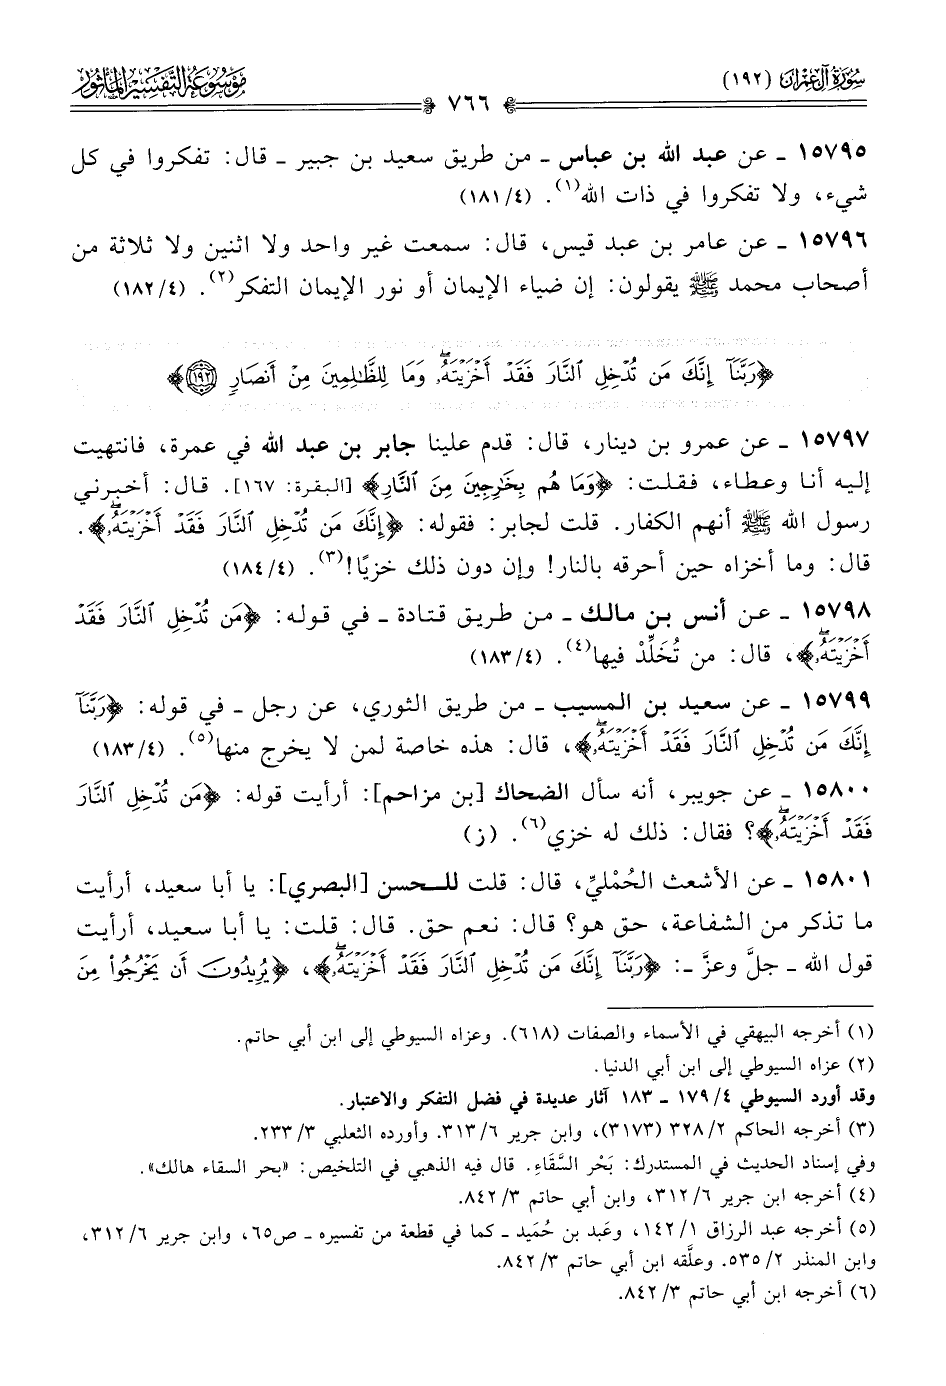 سُورَةُ آلِ عِمْرَانَ (١٩٢)
٧٦٦
مَوْسُوعَةُ التَّفْسِيرِ المَأْثُورِ
١٥٧٩٥ ـ عن عبد الله بن عباس ـ من طريق سعيد بن جبير ـ قال: تفكروا في كل
شيء، ولا تفكروا في ذات الله(١). (١٨١/٤)
١٥٧٩٦ ـ عن عامر بن عبد قيس، قال: سمعت غير واحد ولا اثنين ولا ثلاثة من
أصحاب محمد ﷺ يقولون: إن ضياء الإيمان أو نور الإيمان التفكر(٢). (١٨٢/٤)
﴿رَبَّنَآ إِنَّكَ مَن تُدْخِلِ ٱلنَّارَ فَقَدْ أَخْزَيْتَهُۥۖ وَمَا لِلظَّٰلِمِينَ مِنْ أَنصَارٍ ١٩٢﴾
١٥٧٩٧ ـ عن عمرو بن دينار، قال: قدم علينا جابر بن عبد الله في عمرة، فانتهيت
إليه أنا وعطاء، فقلت: ﴿وَمَا هُم بِخَٰرِجِينَ مِنَ ٱلنَّارِ﴾ [البقرة: ١٦٧]. قال: أخبرني
رسول الله ﷺ أنهم الكفار. قلت لجابر: فقوله: ﴿إِنَّكَ مَن تُدْخِلِ ٱلنَّارَ فَقَدْ أَخْزَيْتَهُۥۖ﴾.
قال: وما أخزاه حين أحرقه بالنار! وإن دون ذلك خزيًا!(٣). (١٨٤/٤)
١٥٧٩٨ ـ عن أنس بن مالك ـ من طريق قتادة ـ في قوله: ﴿مَن تُدْخِلِ ٱلنَّارَ فَقَدْ
أَخْزَيْتَهُۥۖ﴾، قال: من تُخَلِّدْ فيها(٤). (١٨٣/٤)
١٥٧٩٩ ـ عن سعيد بن المسيب ـ من طريق الثوري، عن رجل ـ في قوله: ﴿رَبَّنَآ
إِنَّكَ مَن تُدْخِلِ ٱلنَّارَ فَقَدْ أَخْزَيْتَهُۥۖ﴾، قال: هذه خاصة لمن لا يخرج منها(٥). (١٨٣/٤)
١٥٨٠٠ ـ عن جويبر، أنه سأل الضحاك [بن مزاحم]: أرأيت قوله: ﴿مَن تُدْخِلِ ٱلنَّارَ
فَقَدْ أَخْزَيْتَهُۥۖ﴾؟ فقال: ذلك له خزي(٦). (ز)
١٥٨٠١ ـ عن الأشعث الحُمْليِّ، قال: قلت للحسن [البصري]: يا أبا سعيد، أرأيت
ما تذكر من الشفاعة، حق هو؟ قال: نعم حق. قال: قلت: يا أبا سعيد، أرأيت
قول الله ـ جلَّ وعزَّ ـ: ﴿رَبَّنَآ إِنَّكَ مَن تُدْخِلِ ٱلنَّارَ فَقَدْ أَخْزَيْتَهُۥۖ﴾، ﴿يُرِيدُونَ أَن يَخْرُجُواْ مِنَ
(١) أخرجه البيهقي في الأسماء والصفات (٦١٨). وعزاه السيوطي إلى ابن أبي حاتم.
(٢) عزاه السيوطي إلى ابن أبي الدنيا.
وقد أورد السيوطي ٤/ ١٧٩ ـ ١٨٣ آثار عديدة في فضل التفكر والاعتبار.
(٣) أخرجه الحاكم ٢/ ٣٢٨ (٣١٧٣)، وابن جرير ٦/ ٣١٣. وأورده الثعلبي ٣/ ٢٣٣.
وفي إسناد الحديث في المستدرك: بَحْر السَّقَاءِ. قال فيه الذهبي في التلخيص: «بحر السقاء هالك».
(٤) أخرجه ابن جرير ٦/ ٣١٢، وابن أبي حاتم ٣/ ٨٤٢.
(٥) أخرجه عبد الرزاق ١/ ١٤٢، وعَبد بن حُمَيد ـ كما في قطعة من تفسيره ـ ص٦٥، وابن جرير ٦/ ٣١٢،
وابن المنذر ٢/ ٥٣٥. وعلَّقه ابن أبي حاتم ٣/ ٨٤٢.
(٦) أخرجه ابن أبي حاتم ٣/ ٨٤٢.